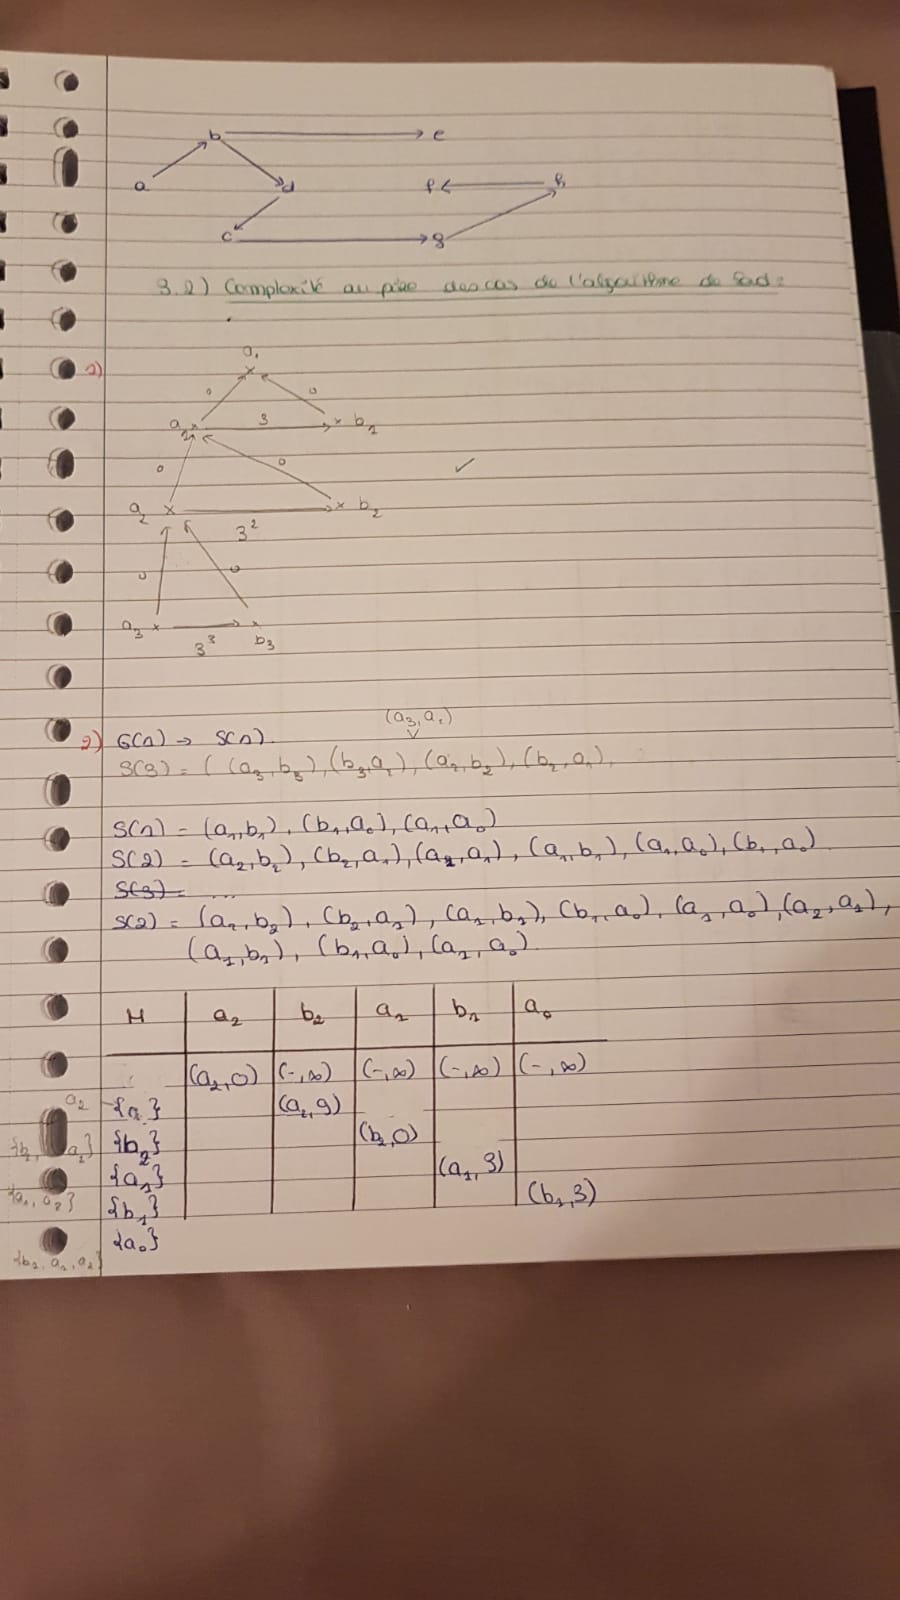 b e
a d f h
c g
3.2) Complexité au pire des cas de l'algorithme de Ford:
1)
a₀
0 0
a₁ 3 b₁
0 0
a₂ b₂
3²
0 0
a₃ 3³ b₃
(a₃, a₂)
2) G(n) → S(n)
S(3) = ( (a₃, b₃), (b₃, a₂), (a₂, b₂), (b₂, a₁),
S(1) = (a₁, b₁), (b₁, a₀), (a₁, a₀)
S(2) = (a₂, b₂), (b₂, a₁), (a₂, a₁), (a₁, b₁), (a₁, a₀), (b₁, a₀)
S(3) = ...
S(2) = (a₂, b₂), (b₂, a₁), (a₁, b₁), (b₁, a₀), (a₁, a₀), (a₂, a₁),
(a₁, b₁), (b₁, a₀), (a₁, a₀).
M a₂ b₂ a₁ b₁ a₀
(a₂, 0) (-, ∞) (-, ∞) (-, ∞) (-, ∞)
a₂ {a } (a₂, 9)
{b₂, a₂} {b₂} (b₂, 0)
{a₁, a₂} {a₁} (a₁, 3)
{b₁} (b₁, 3)
{b₂, a₁, a₂} {a₀}